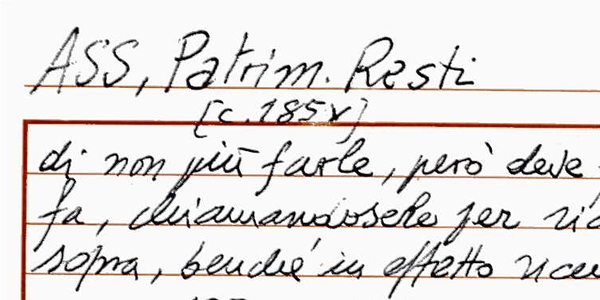 ASS, Patrim. Resti
[c.185v]
di non più farle, però deve
fa, chiamandosele per
sopra, benché in effetto